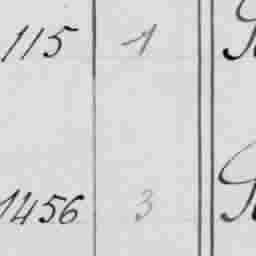 115 1
1456 3